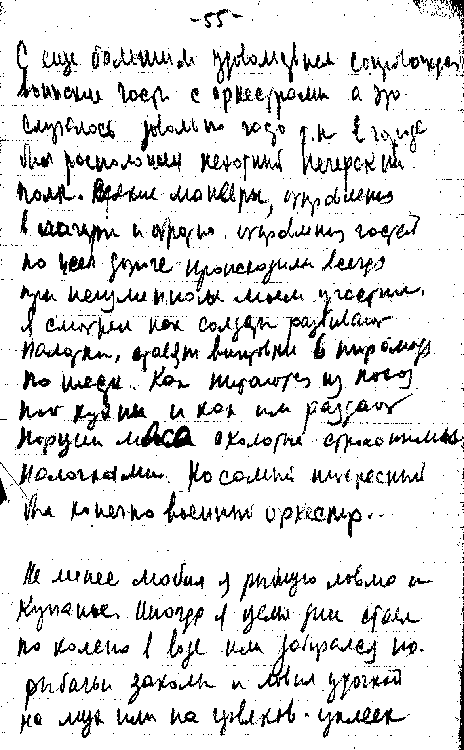 -55-
С еще большим удовольствием сопровождал
воинские части с оркестрами а это
случалось довольно часто т.к. в городе
был расположен пехотный Печерский
полк. Всякие маневры, отправления
в лагери и обратно, отправления частей
по всей дороге происходили всегда
при неизменном моем участии.
Я смотрел как солдаты разбивают
палатки, ставят винтовки в пирамиды
по шесть. Как питаются из поход
ной кухни и как им раздают
порции мяса сколотые
палочками. Но самый интересный
был конечно военный оркестр..
Не менее любил я рыбную ловлю и
купанье. Иногда я целые дни стоял
по колено в воде или забирался на
рыбачьи заколы и ловил удочкой
на муху или на червяков - уклеек